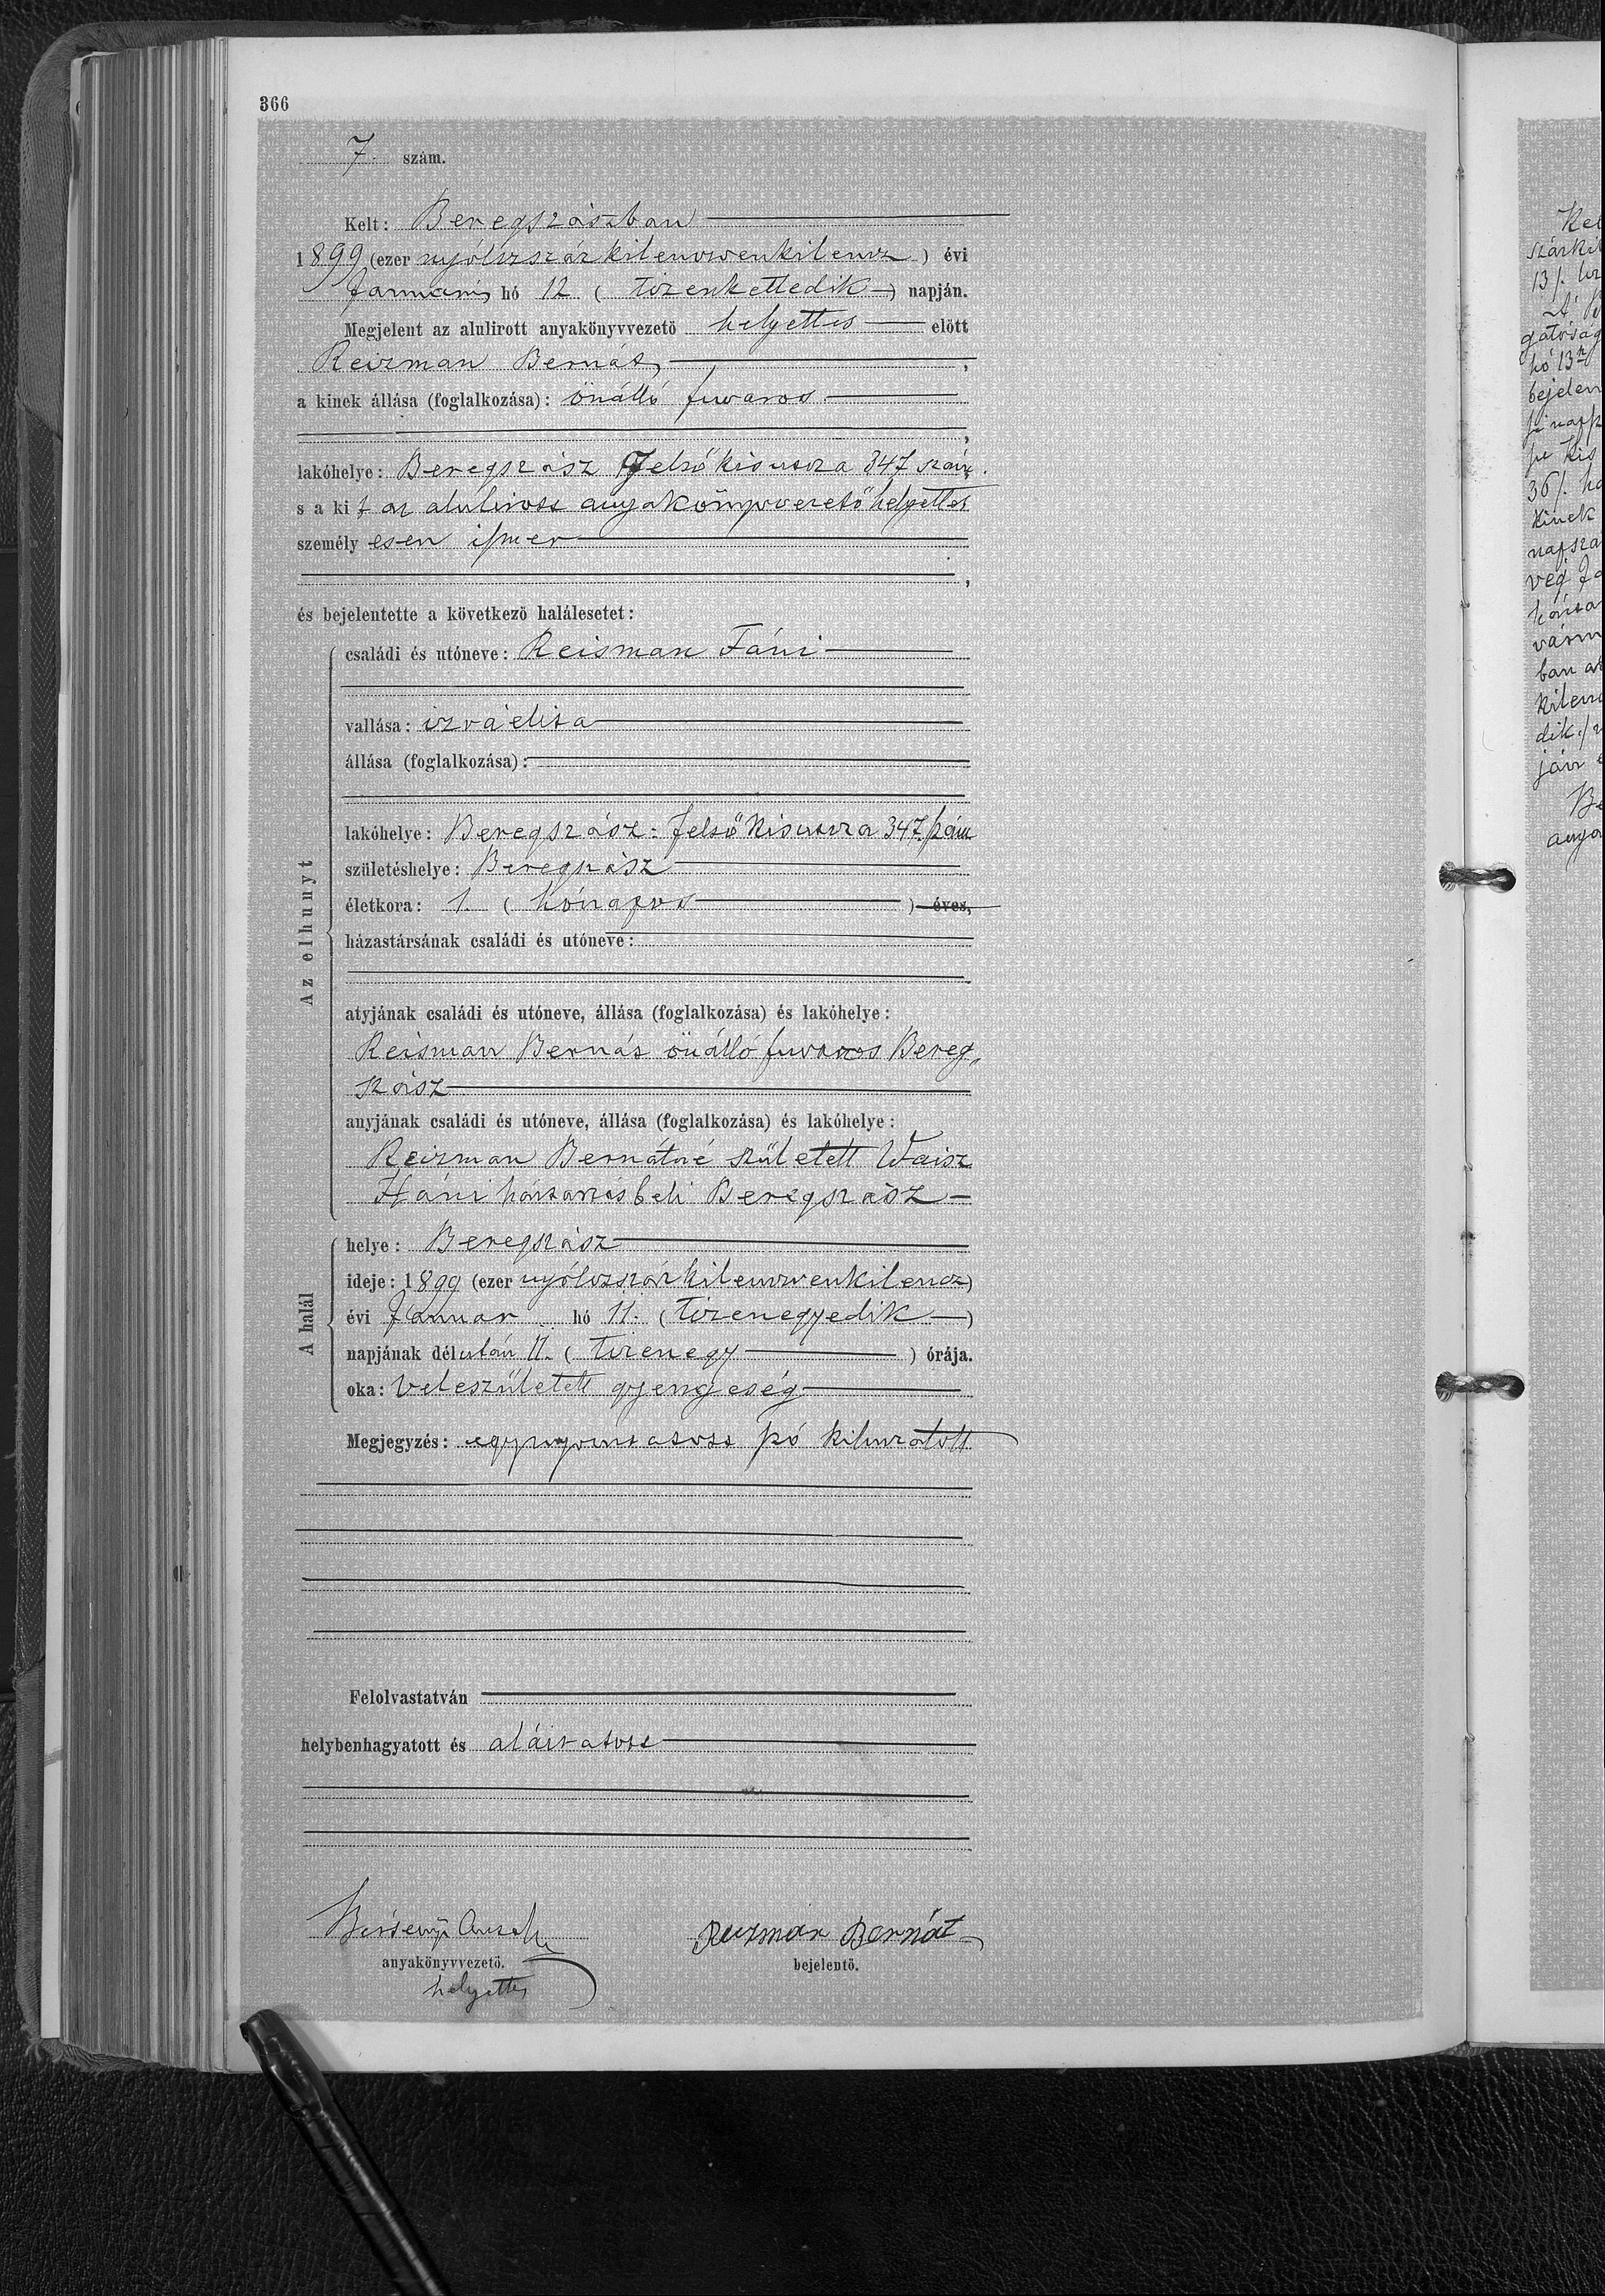 366
7. szám.
Kelt: Beregszászban
1899 (ezer nyólczszázkilenczvenkilencz) évi
Januariu hó 12 (tizenkettedik) napján.
Megjelent az alulirott anyakönyvvezető helyettes előtt
Reizman Bernát,
a kinek állása (foglalkozása): önálló fuvaros
lakóhelye: Beregszász Felsőkisutcza 347 szám,
s a kit az alulirott anyakönyvvezető helyettes
személyesen ismer,
és bejelentette a következő halálesetet:
Az elhunyt
családi és utóneve: Reisman Fáni
vallása: izraelita
állása (foglalkozása):
lakóhelye: Beregszász: felsőkisutcza 347. szám
születéshelye: Beregszász
életkora: 1. (hónapos) éves,
házastársának családi és utóneve:
atyjának családi és utóneve, állása (foglalkozása) és lakóhelye:
Reisman Bernát önálló fuvaros Bereg„
szász
anyjának családi és utóneve, állása (foglalkozása) és lakóhelye:
Reizman Bernátné született Waisz
Háni háztartásbeli Beregszász
A halál
helye: Beregszász
ideje: 1899 (ezer nyólczszázkilenczvenkilencz)
évi Januar hó 11. (tizenegyedik)
napjának délután 11. (tizenegy) órája.
oka: Veleszületett gyengeség
Megjegyzés: egy nyomtatott szó kihuzatott
Felolvastatván
helybenhagyatott és aláiratott
anyakönyvvezető.
helyettes
Reizman Bernát
bejelentő.
Kel
13/.
hó 13
bejelen
36/. há
kinek
napsza
vég Ja
várm
ban az
kilenc
dik/
Be
anya